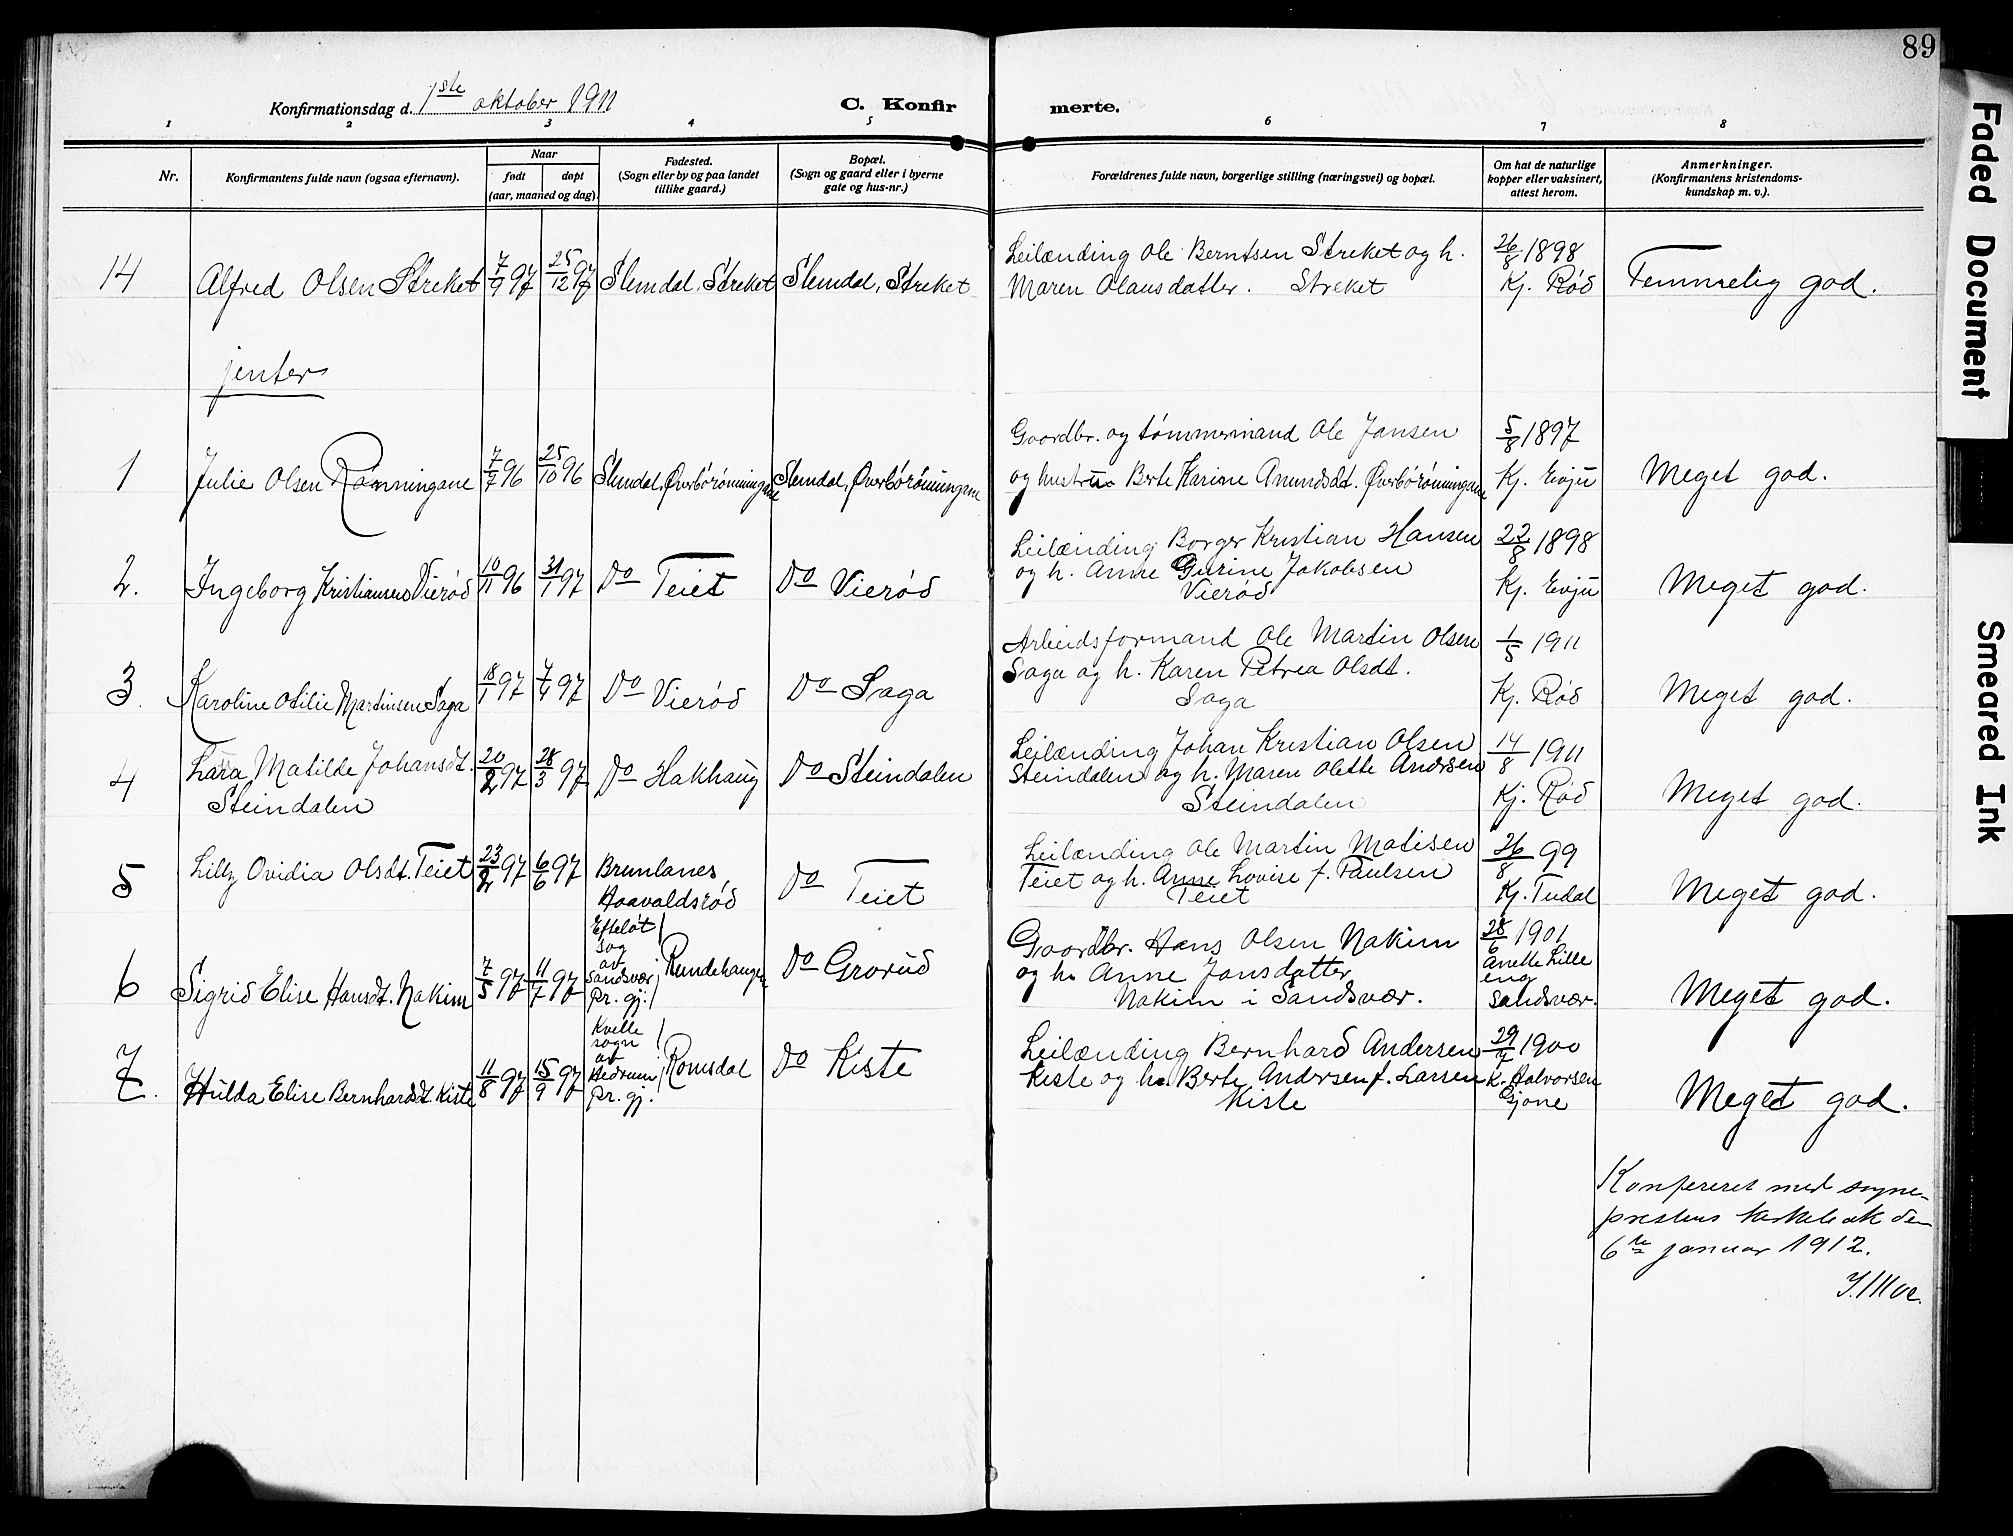 89
Konfirmationsdag d. 1ste oktober 1911
C. Konfir merte.
1 2 3 4 5 6 7 8
Nr.
Konfirmantens fulde navn (ogsaa efternavn).
Naar
født døpt
(aar, maaned og dag).
Fødested.
(Sogn eller by og paa landet
tillike gaard.)
Bopæl.
(Sogn og gaard eller i byerne
gate og hus-nr.)
Forældrenes fulde navn, borgerlige stilling (næringsvei) og bopæl.
Om hat de naturlige
kopper eller vaksinert,
attest herom.
Anmerkninger.
(Konfirmantens kristendoms-
kundskap m. v.).
14 Alfred Olsen Streket 7/9 97 25/12 97 Slemdal, Streket Slemdal, Streket
Leilænding Ole Berntsen Streket og h.
Maren Olausdatter. Streket
26/8 1898
Kj. Rød
Temmelig god.
jenter
1 Julie Olsen Rønningane 7/7 96 25/10 96 Slemdal, Øverbørønningane Slemdal, Øverbørønningane
Gaardbr. og tømmermand Ole Jansen
og hustru Berte Karine Amundsdt. Øverbørønningane
5/8 1897
Kj. Evju
Meget god.
2. Ingeborg Kristiansen Vierød 10/11 96 31/1 97 Do Teiet Do Vierød
Leilænding Borger Kristian Hansen
og h. Anne Gurine Jakobsen
Vierød
22/8 1898
Kj. Evju
Meget god.
3. Karoline Otilie Martinsen Saga 18/1 97 7/4 97 Do Vierød Do Saga
Arbeidsformand Ole Martin Olsen
Saga og h. Karen Petrea Olsdt.
Saga
1/5 1911
Kj. Rød
Meget god.
4 Lara Matilde Johansdt.
Steindalen
20/2 97 28/3 97 Do Hakhaug Do Steindalen
Leilænding Johan Kristian Olsen
Steindalen og h. Maren Olette Andrsen
Steindalen
14/8 1911
Kj. Rød
Meget god.
5 Lilly Ovidia Olsdt. Teiet 23/2 97 6/6 97 Brunlanes,
Haavaldsrød
Do Teiet
Leilænding Ole Martin Matisen
Teiet og h. Anne Lovise f. Paulsen
Teiet
26/8 99
Kj. Tudal
Meget god.
6 Sigrid Elise Hansdt. Nakim 7/5 97 11/7 97
Efteløt
sog
av
Sandsvær
pr. gj.
Rundehaugen
Do Grorud
Gaardbr. Hans Olsen Nakim
og h. Anne Jansdatter
Nakim i Sandsvær.
28/6 1901
Anette Lille
eng
Sandsvær.
Meget god.
7. Hulda Elise Bernhardsdt. Kiste 11/8 97 15/9 97
Kvelle
sogn
av
Hedrum
pr. gj.
Romsdal
Do Kiste
Leilænding Bernhard Andersen
Kiste og h. Berte Andersen f. Larsen
Kiste
29/7 1900
K. Halvorsen
Gjone
Meget god.
Konfereret med sogne-
prestens kirkebok den
6te januar 1912.
Faded Document
Smeared Ink